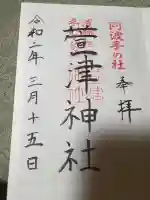 阿波手の社
奉拝
萱津神社
令和二年三月十五日